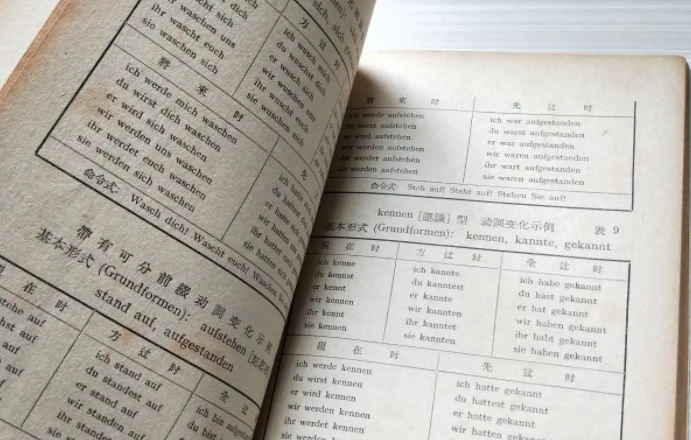 waschst sich
wascht sich
waschen uns
ihr wascht euch
sie waschen sich
方 过 时
ich wusch mich
du wuschst dich
er wusch sich
wir wuschen uns
ihr wuscht euch
sie wuschen sich
將 來 时
ich werde mich waschen
du wirst dich waschen
er wird sich waschen
wir werden uns waschen
ihr werdet euch waschen
sie werden sich waschen
先
ich hatte
du hattest
er hatte sich
wir hatten
ihr hattet
sie hatten sich
命令式: Wasch dich! Wascht euch! Waschen
帶有可分前綴动詞变化示例
基本形式 (Grundformen): aufstehen
stand auf, aufgestanden
在 时
stehe auf
方 过 时
ich stand auf
du standest auf
er stand auf
wir standen auf
ihr standet auf
sie standen auf
全 过
ich bin
du bist
將 來 时
ich werde aufstehen
du wirst aufstehen
er wird aufstehen
wir werden aufstehen
ihr werdet aufstehen
sie werden aufstehen
先 过 时
ich war aufgestanden
du warst aufgestanden
er war aufgestanden
wir waren aufgestanden
ihr wart aufgestanden
sie waren aufgestanden
命令式: Steh auf! Steht auf! Stehen Sie auf!
kennen [認識] 型 动詞变化示例 表 9
基本形式 (Grundformen): kennen, kannte, gekannt
現 在 时
ich kenne
du kennst
er kennt
wir kennen
ihr kennt
sie kennen
方 过 时
ich kannte
du kanntest
er kannte
wir kannten
ihr kanntet
sie kannten
全 过 时
ich habe gekannt
du hast gekannt
er hat gekannt
wir haben gekannt
ihr habt gekannt
sie haben gekannt
現 在 时
ich werde kennen
du wirst kennen
er wird kennen
wir werden kennen
ihr werdet kennen
sie werden kennen
先 过 时
ich hatte gekannt
du hattest gekannt
er hatte gekannt
wir hatten gekannt